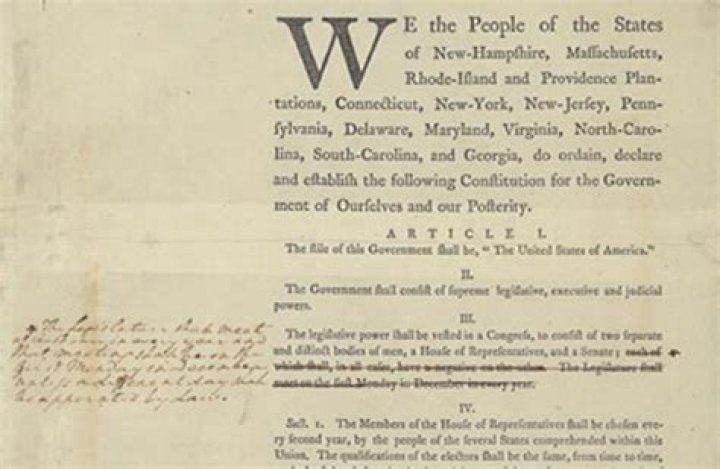 WE the People of the States
of New-Hampſhire, Maſſachuſetts,
Rhode-Iſland and Providence Plan-
tations, Connecticut, New-York, New-Jerſey, Penn-
ſylvania, Delaware, Maryland, Virginia, North-Caro-
lina, South-Carolina, and Georgia, do ordain, declare
and eſtabliſh the following Conſtitution for the Govern-
ment of Ourſelves and our Poſterity.
ARTICLE I.
The ſtile of this Government ſhall be, “ The United States of America.”
II.
The Government ſhall conſiſt of ſupreme legiſlative, executive and judicial
powers.
III.
The legiſlative power ſhall be veſted in a Congreſs, to conſiſt of two ſeparate
and diſtinct bodies of men, a Houſe of Repreſentatives, and a Senate; each of
which ſhall, in all caſes, have a negative on the other. The Legiſlature ſhall
meet on the firſt Monday in December in every year.
The Legislature shall meet
at least once in every year and
that meeting shall be on the
first Monday in December
unless a different day shall
be appointed by Law.
IV.
Sect. 1. The Members of the Houſe of Repreſentatives ſhall be choſen eve-
ry ſecond year, by the people of the ſeveral States comprehended within this
Union. The qualifications of the electors ſhall be the ſame, from time to time,